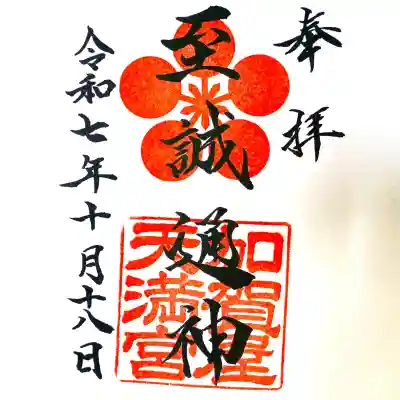 奉拝
至誠通神
加賀屋
天満宮
令和七年十月十八日